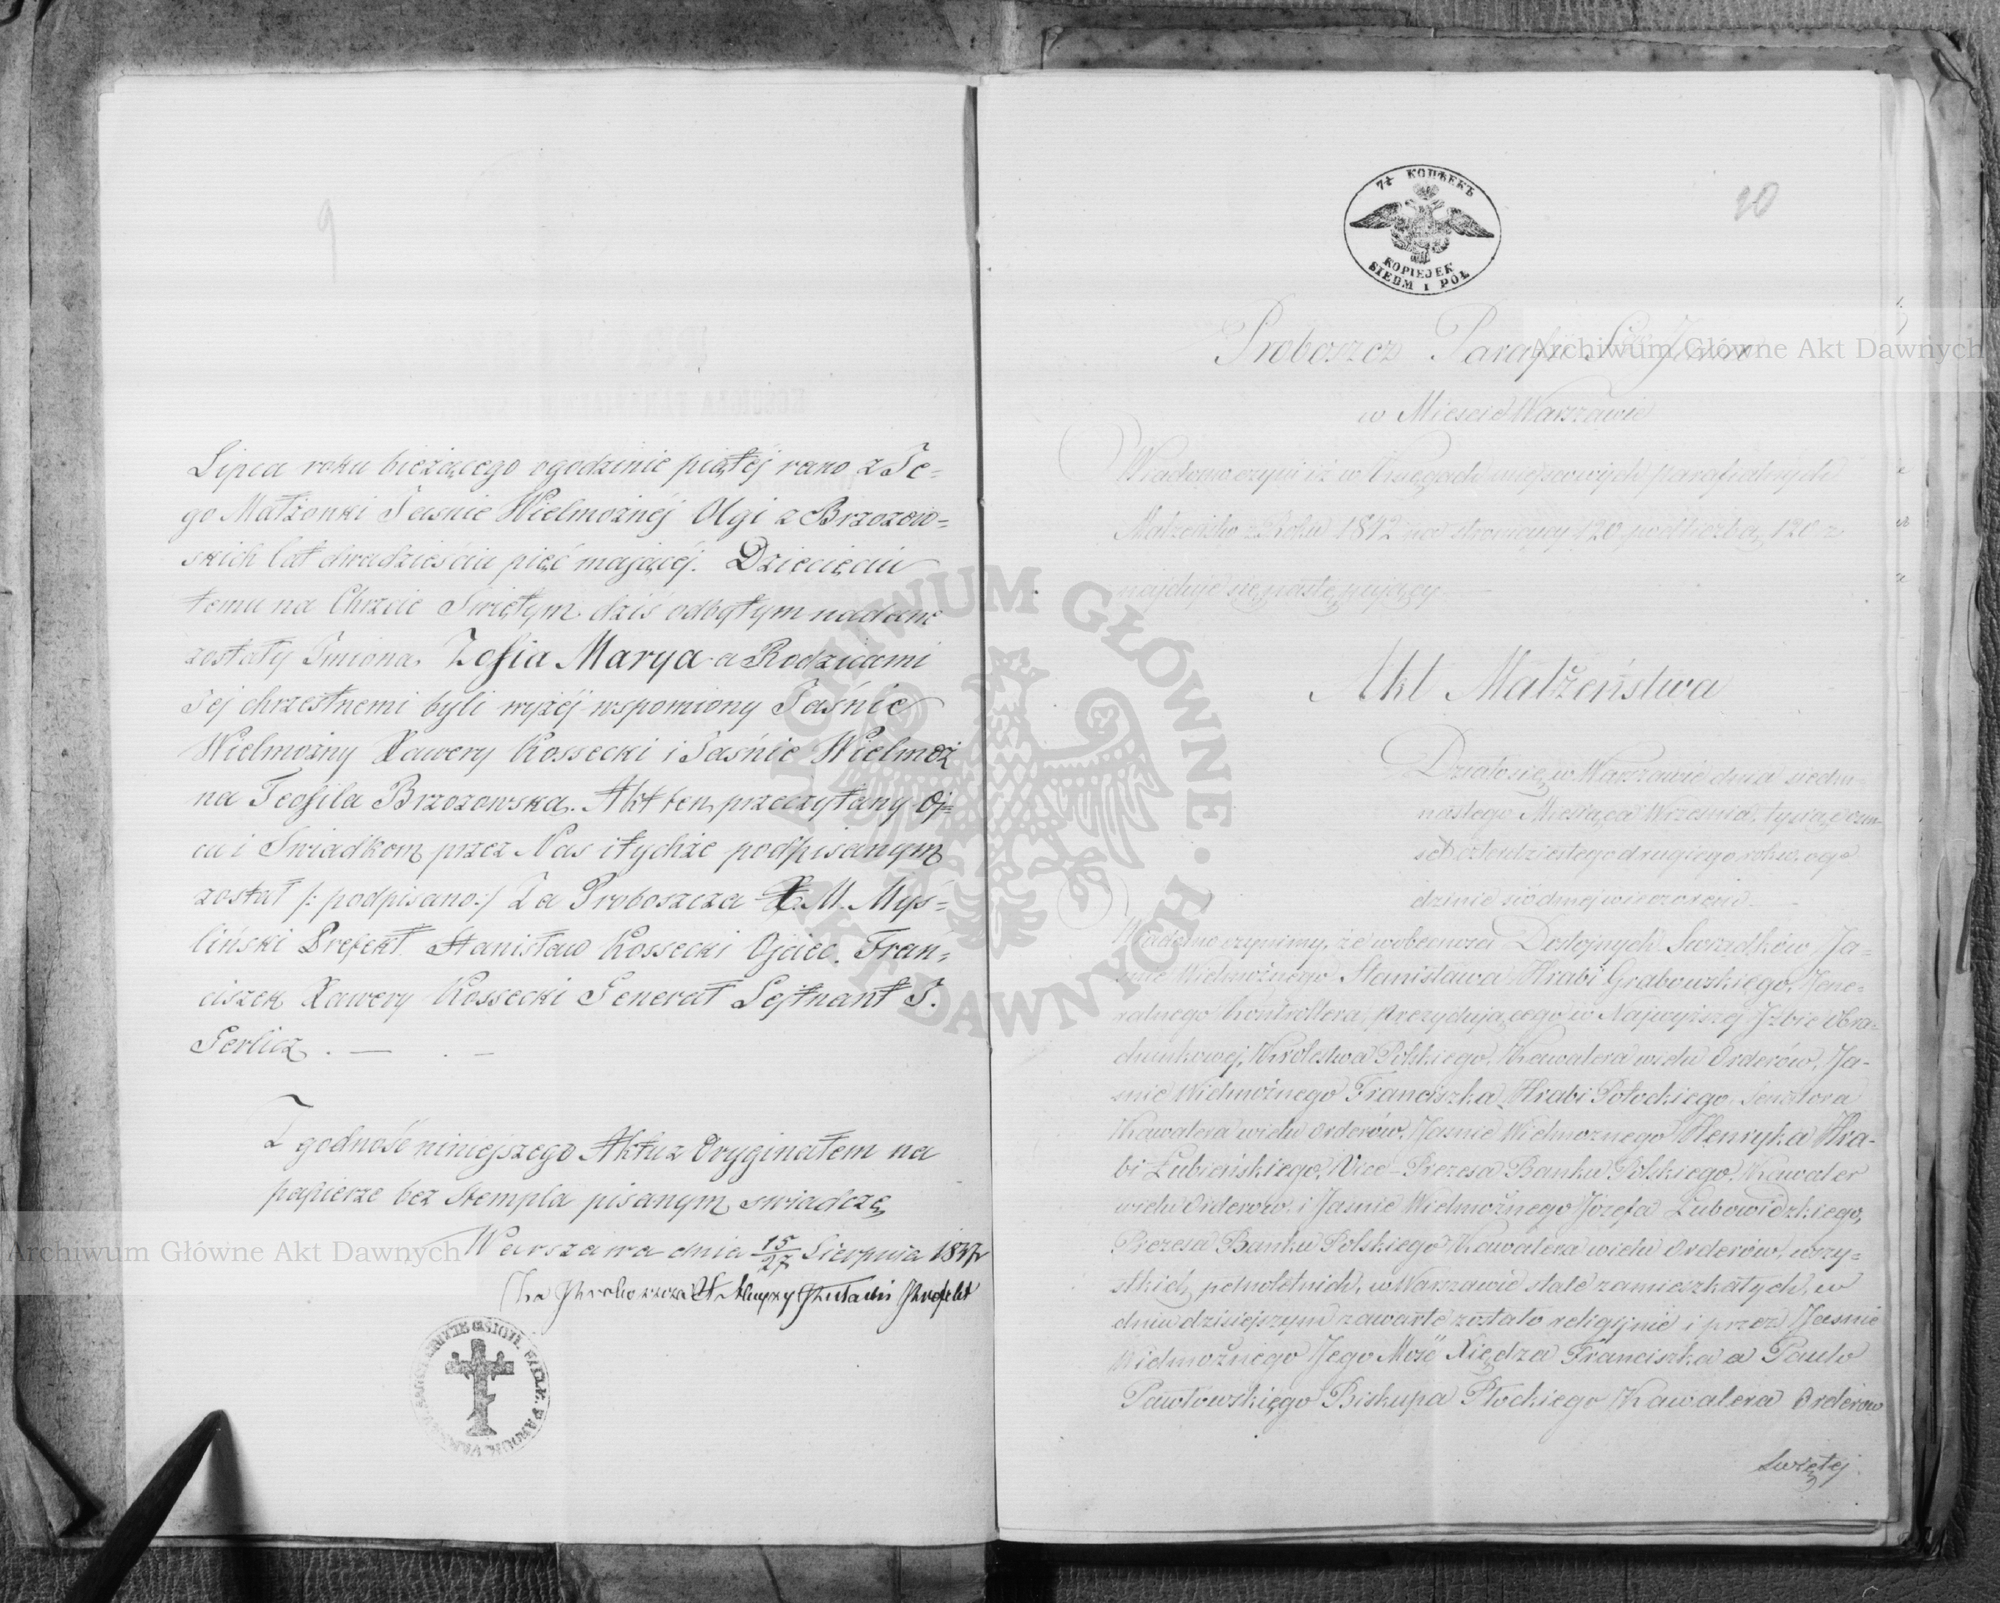 9
Lipca roku bieżącego ogodzinie piątéj rano z Je-
go Małżonki Jaśnie Wielmożnéj Olgi z Brzozow-
skich lat dwadzieścia pięć mającéj. Dziecięciu
temu na Chrzcie Świętym dziś odbytym nadane
zostały Imiona Zofia Marya a Rodzicami
Jej chrzestnemi byli wyżéj wspomiony Jaśnie
Wielmożny Xawery Kossecki i Jaśnie Wielmoż
na Teofila Brzozowska. Akt ten przeczytany Oj-
cu i Swiadkom przez Nas i tychże podpisanym
został /: podpisano:/ Za Proboszcza X. M. Myś-
liński Prefekt Stanisław Kossecki Ojciec. Fran-
ciszek Xawery Kossecki Generał Lejtnant J.
Gerlicz.
Zgodność niniejszego Aktu z Oryginałem na
papierze bez Stempla pisanym swiadczę
Warszawa dnia 15/27 Sierpnia 1837 r
Za Proboszcza X. Prefekt
7½ КОПѢЕКЪ
KOPIEJEK
SIEDM I PÓŁ
20
Proboszcz Parafii Sgo Jana
w Miescie Warszawie
Wiadomo czyni iż w Xięgach miejscowych parafialnych
Małżeństw z Roku 1842 na stronnicy 120 pod liczbą 120 z
najduje się następujący
Akt Małżeństwa
Działo się w Warszawie dnia siedm-
nastego Miesiąca Września, tysiąc ośm-
set czterdziestego drugiego roku, o go
dzinie siódmej wieczorem.
Wiadomo czynimy, że w obecności Dostojnych Swiadków Ja-
śnie Wielmożnego Stanisława Hrabi Grabowskiego, Jene-
ralnego Kontrollera, Prezydującego w Najwyższej Izbie Obra-
chunkowej, Królestwa Polskiego, Kawalera wielu Orderów, Ja-
śnie Wielmożnego Franciszka Hrabi Potockiego Senatora
Kawalera wielu Orderów, Jaśnie Wielmożnego Henryka Hra-
bi Łubieńskiego, Vice-Prezesa Banku Polskiego, Kawaler
wielu Orderów, i Jaśnie Wielmożnego Józefa Lubowidzkiego,
Prezesa Banku Polskiego Kawalera wielu Orderów, wszy-
stkich pełnoletnich, w Warszawie stale zamieszkałych, w
dniu dzisiejszym zawarte zostało religijnie i przez Jaśnie
Wielmożnego Jego Mość Xiędza Franciszka a Paulo
Pawłowskiego Biskupa Płockiego Kawalera Orderów
Świętej
Archiwum Główne Akt Dawnych
Archiwum Główne Akt Dawnych
ARCHIWUM GŁÓWNE AKT DAWNYCH